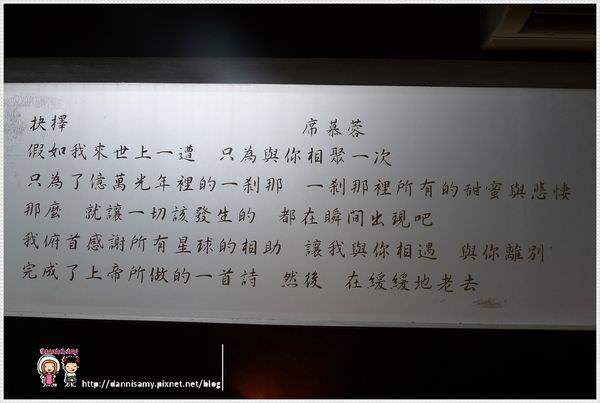 抉擇 席慕蓉
假如我來世上一遭 只為與你相聚一次
只為了億萬光年裡的一剎那 一剎那裡所有的甜蜜與悲悽
那麼 就讓一切該發生的 都在瞬間出現吧
我俯首感謝所有星球的相助 讓我與你相遇 與你離別
完成了上帝所做的一首詩 然後 在緩緩地老去
http://dannisamy.pixnet.net/blog